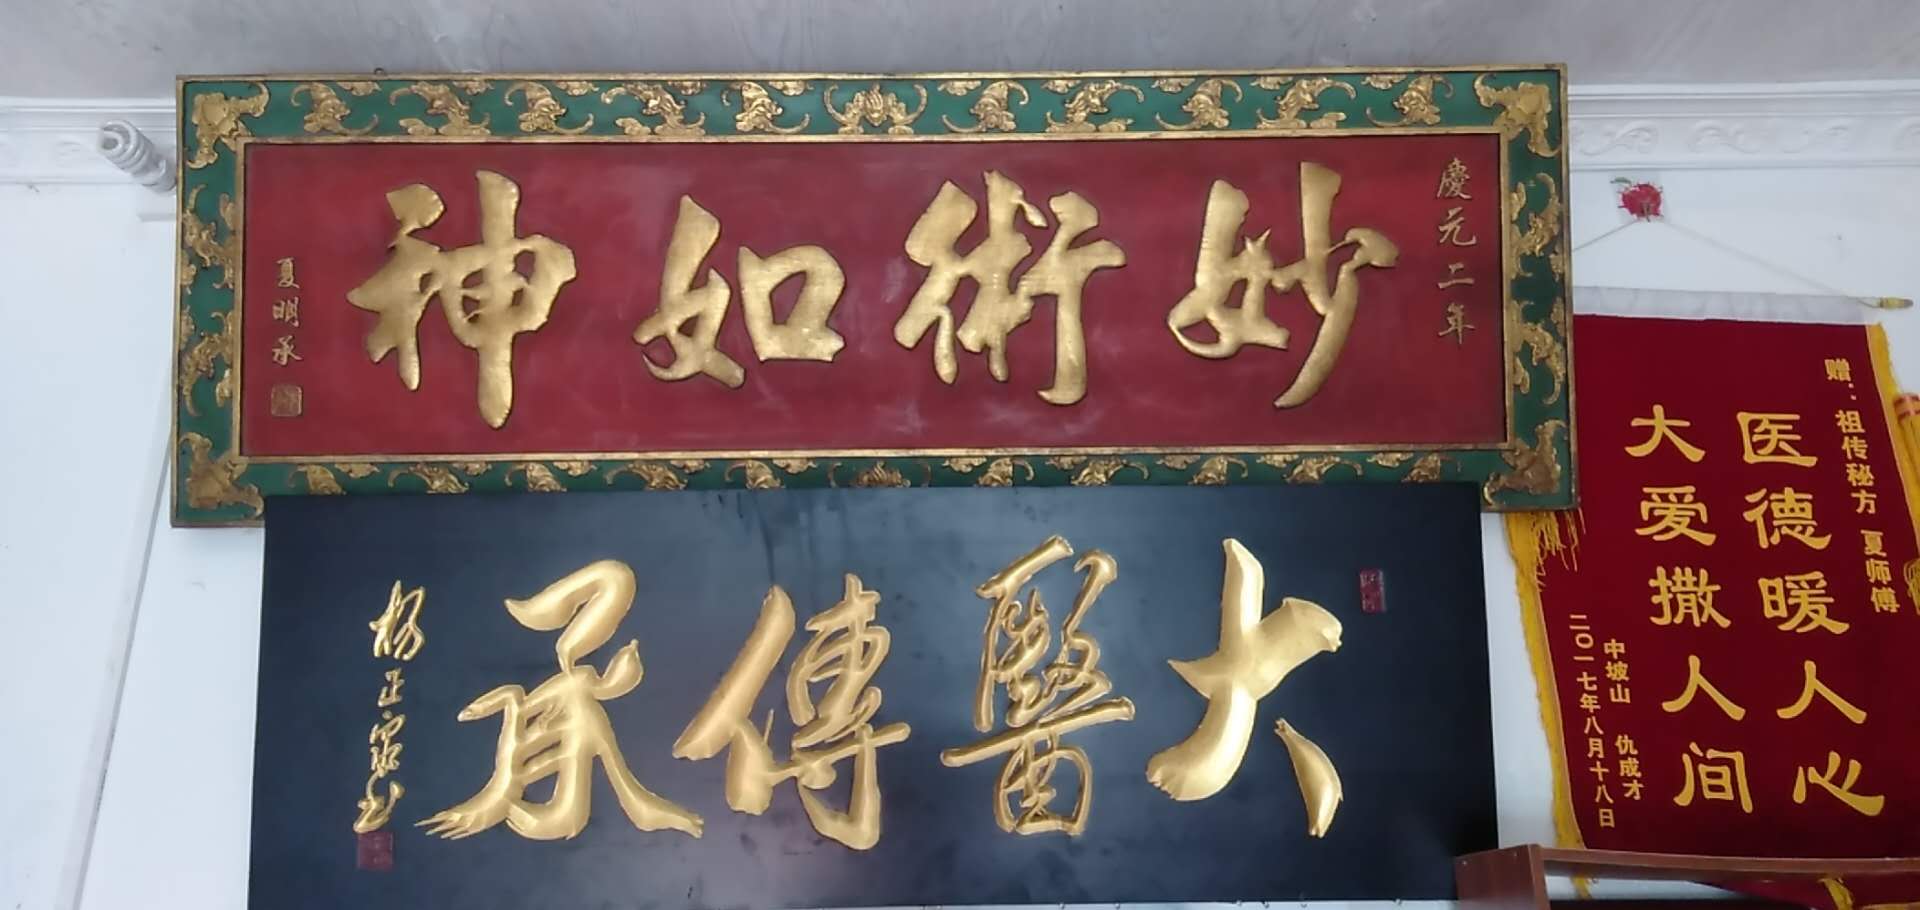 慶元二年
妙術如神
夏明承
大醫傳承
杨正
赠：祖传秘方 夏师傅
医德暖人心
大爱撒人间
中坡山 仇成才
二〇一七年八月十八日